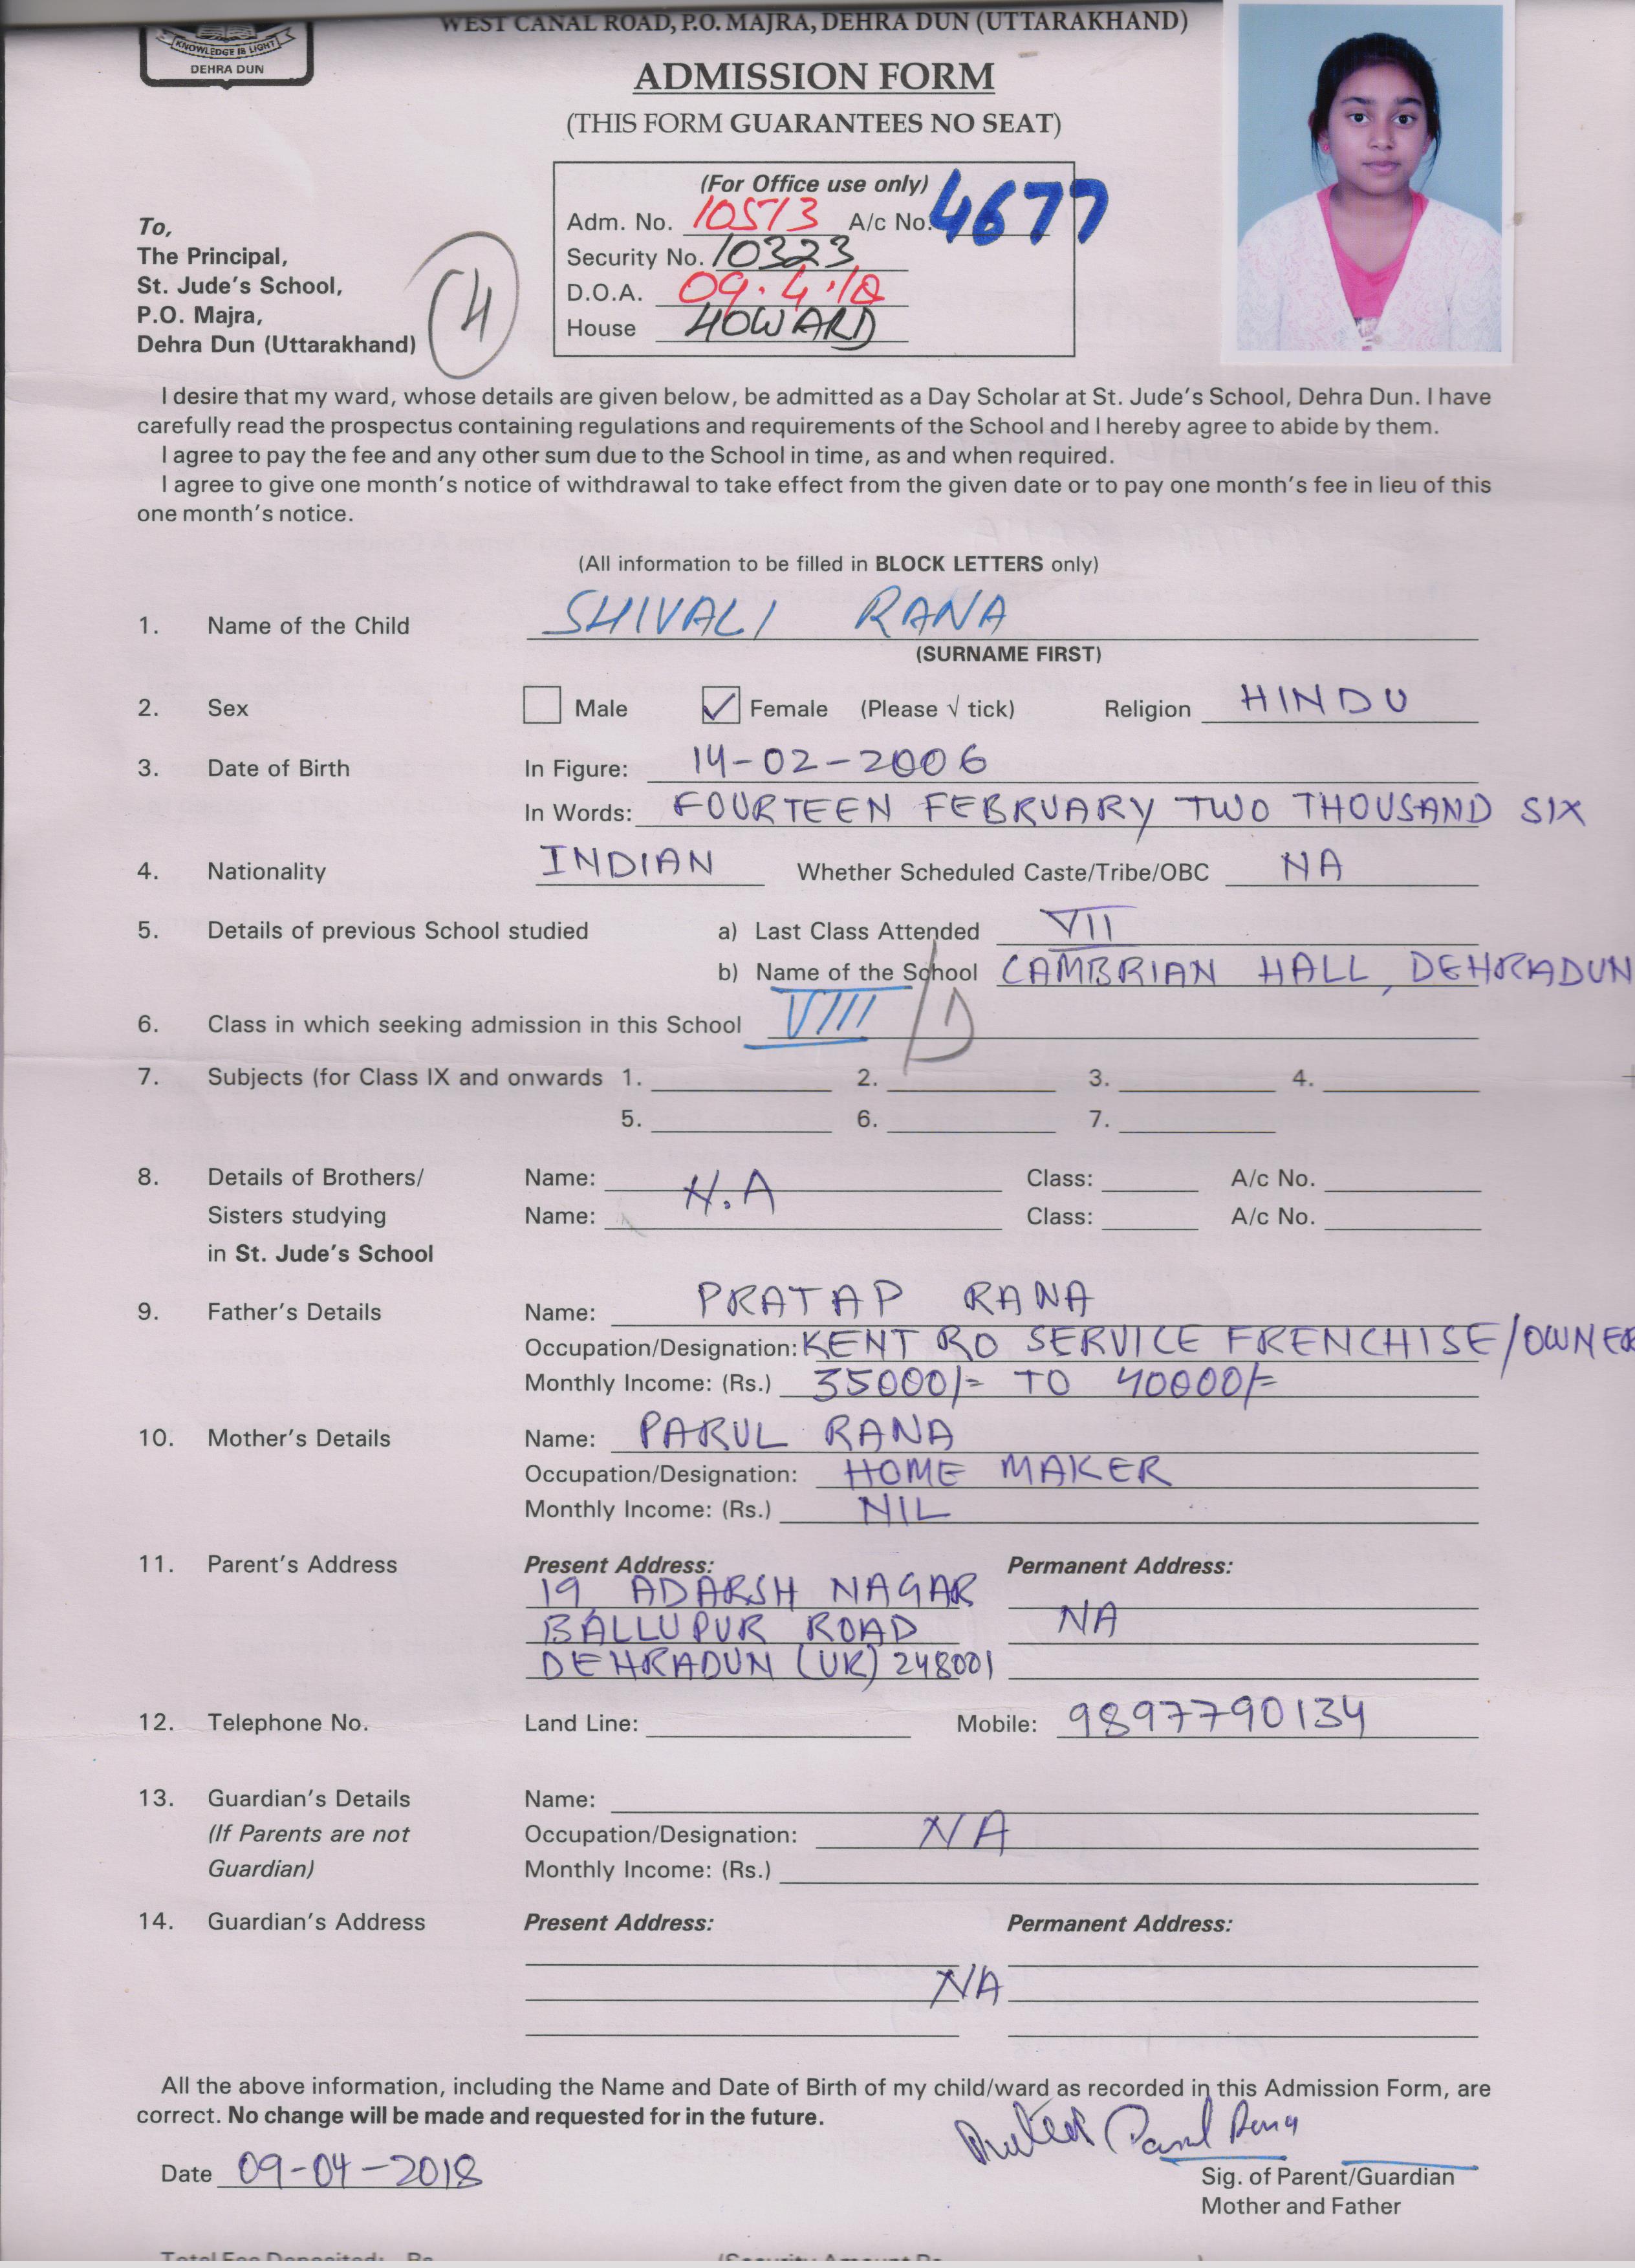 WEST CANAL ROAD, P.O. MAJRA, DEHRA DUN (UTTARAKHAND)
KNOWLEDGE IS LIGHT
DEHRA DUN
ADMISSION FORM
(THIS FORM GUARANTEES NO SEAT)
(For Office use only)
Adm. No. 10573 A/c No. 4677
Security No. 10323
D.O.A. 09.4.18
House HOWARD
To,
The Principal,
St. Jude's School,
P.O. Majra,
Dehra Dun (Uttarakhand)
4
I desire that my ward, whose details are given below, be admitted as a Day Scholar at St. Jude's School, Dehra Dun. I have
carefully read the prospectus containing regulations and requirements of the School and I hereby agree to abide by them.
I agree to pay the fee and any other sum due to the School in time, as and when required.
I agree to give one month's notice of withdrawal to take effect from the given date or to pay one month's fee in lieu of this
one month's notice.
(All information to be filled in BLOCK LETTERS only)
1. Name of the Child SHIVALI RANA
(SURNAME FIRST)
2. Sex Male ✓ Female (Please √ tick) Religion HINDU
3. Date of Birth In Figure: 14-02-2006
In Words: FOURTEEN FEBRUARY TWO THOUSAND SIX
4. Nationality INDIAN Whether Scheduled Caste/Tribe/OBC NA
5. Details of previous School studied a) Last Class Attended VII
b) Name of the School CAMBRIAN HALL, DEHRADUN
6. Class in which seeking admission in this School VIII /D
7. Subjects (for Class IX and onwards 1. 2. 3. 4.
5. 6. 7.
8. Details of Brothers/ Name: N.A Class: A/c No.
Sisters studying Name: Class: A/c No.
in St. Jude's School
9. Father's Details Name: PRATAP RANA
Occupation/Designation: KENT RO SERVICE FRENCHISE/OWNER
Monthly Income: (Rs.) 35000/= TO 40000/=
10. Mother's Details Name: PARUL RANA
Occupation/Designation: HOME MAKER
Monthly Income: (Rs.) NIL
11. Parent's Address Present Address: Permanent Address:
19, ADARSH NAGAR
BALLUPUR ROAD NA
DEHRADUN (UK) 248001
12. Telephone No. Land Line: Mobile: 9897790134
13. Guardian's Details Name:
(If Parents are not Occupation/Designation: NA
Guardian) Monthly Income: (Rs.)
14. Guardian's Address Present Address: Permanent Address:
NA
All the above information, including the Name and Date of Birth of my child/ward as recorded in this Admission Form, are
correct. No change will be made and requested for in the future.
Parul Rana
Date 09-04-2018
Sig. of Parent/Guardian
Mother and Father
Total Fee Deposited: Rs. (Security Amount Rs. )